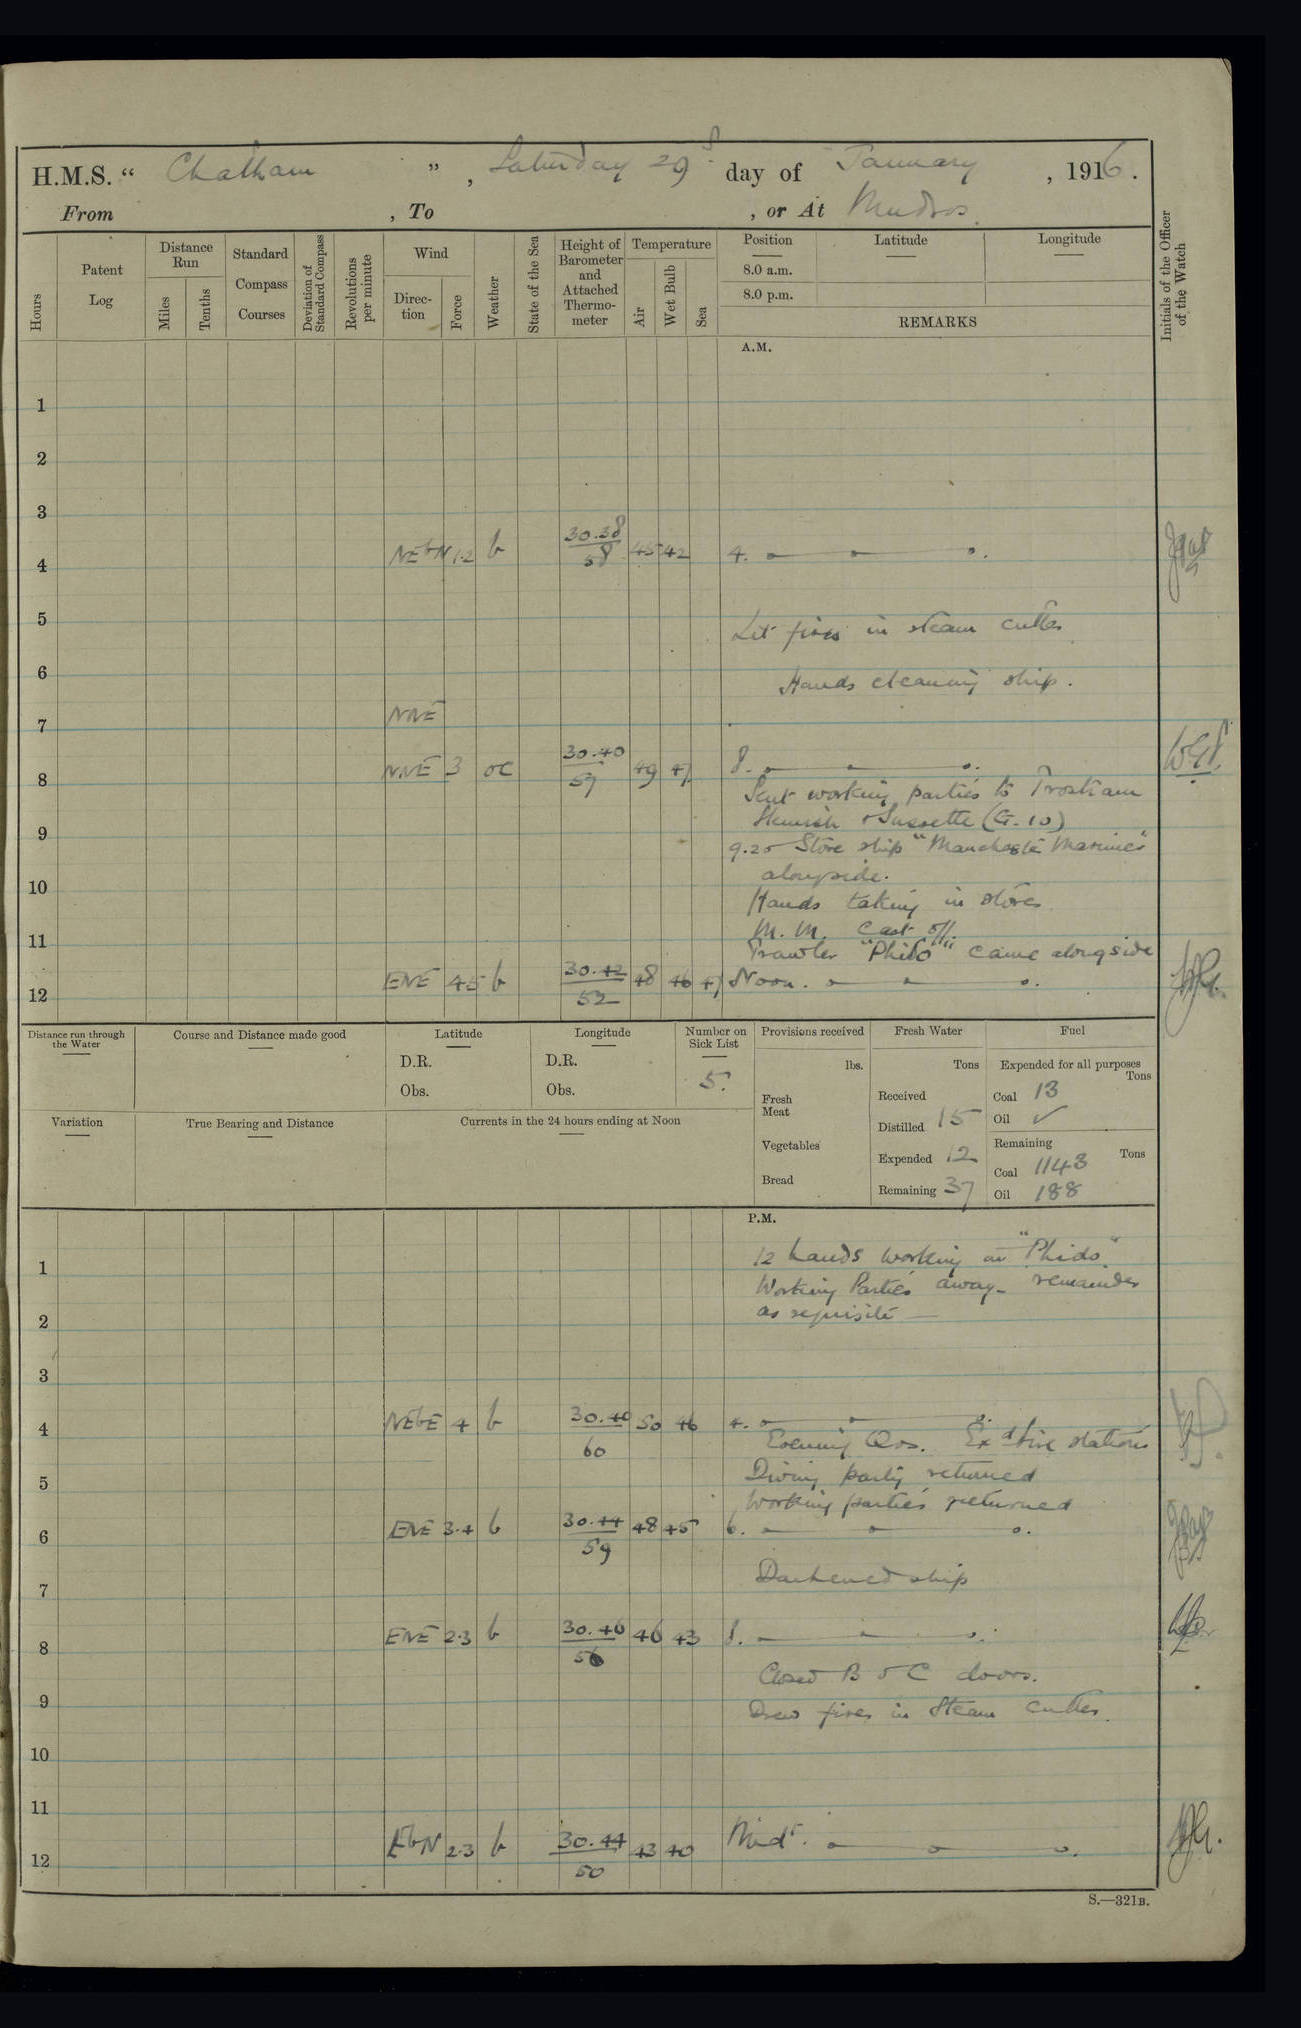 H.M.S. “ Chatham ” , Saturday 29th day of January , 1916.
From , To , or At Mudros.
Hours
Patent Log
Distance Run
Miles
Tenths
Standard Compass Courses
Deviation of Standard Compass
Revolutions per minute
Wind
Direc-tion
Force
Weather
State of the Sea
Height of Barometer and Attached Thermo-meter
Temperature
Air
Wet Bulb
Sea
Position
Latitude
Longitude
8.0 a.m.
8.0 p.m.
REMARKS
Initials of the Officer of the Watch
A.M.
1
2
3
4 NEbN 1.2 b 30.38 58 45 42 4.
5 Lit fires in steam cutter
6 Hands cleaning ship.
7 NNE
8 NNE 3 oc 30.40 59 49 47 8.
Sent working parties to
(G.10)
9
9.20 Store ship "Manchester Mariner"
alongside.
10 Hands taking in stores
M.M. Cast off.
11 Trawler "Phido" came alongside
12 ENE 4.5 b 30.42 52 48 46 47 Noon.
Distance run through the Water
Course and Distance made good
Latitude
D.R.
Obs.
Longitude
D.R.
Obs.
Number on Sick List
5.
Provisions received
lbs.
Fresh Meat
Vegetables
Bread
Fresh Water
Tons
Received
Distilled 15
Expended 12
Remaining 37
Fuel
Expended for all purposes
Tons
Coal 13
Oil ✓
Remaining
Tons
Coal 1143
Oil 188
Variation
True Bearing and Distance
Currents in the 24 hours ending at Noon
P.M.
1 12 hands working on "Phido"
Working Parties away - remainder
2 as requisite —
3
4 NEbE 4 b 30.40 60 50 46 4.
Evening Qrs. Exd fire stations
5 Diving party returned
Working parties returned
6 ENE 3.4 b 30.44 59 48 45 6.
7 Darkened ship
8 ENE 2.3 b 30.46 56 46 43 8.
Closed B & C doors.
9 Drew fires in Steam Cutter.
10
11
12 EbN 2.3 b 30.44 50 43 40 Midt.
S.—321B.